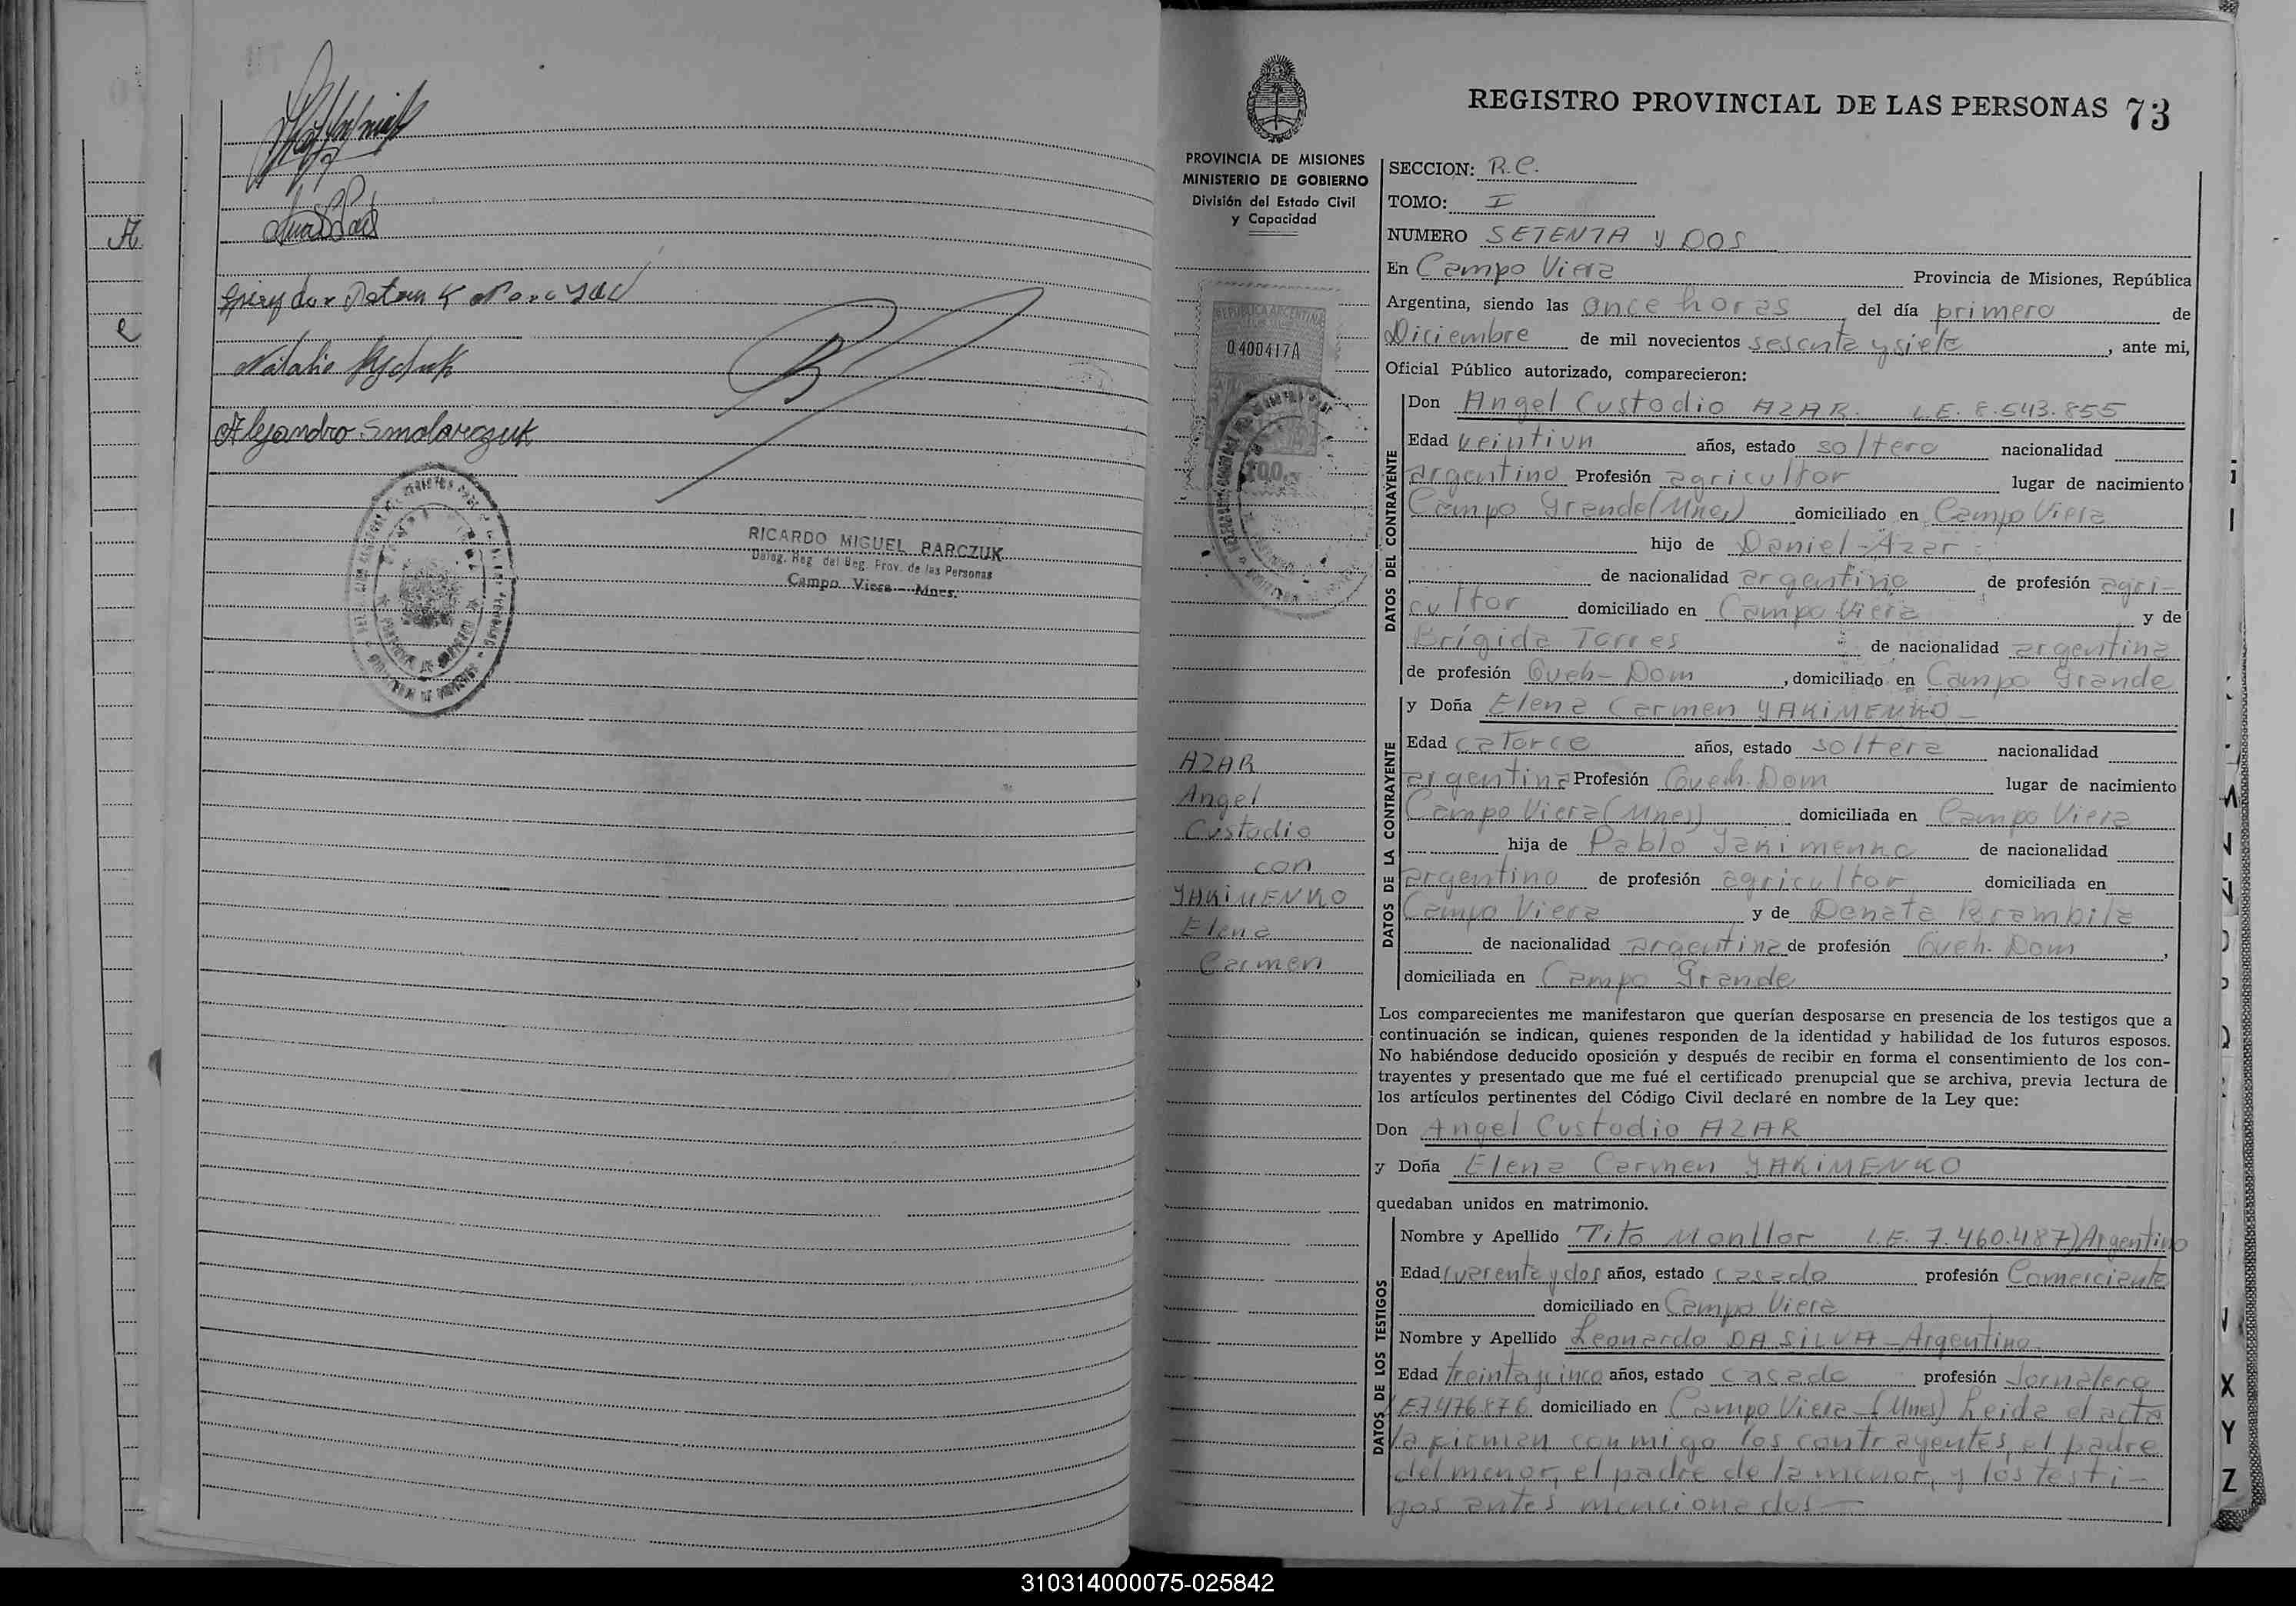 Natalio
Alejandro Smolarczuk
RICARDO MIGUEL BARCZUK
Deleg. Reg. del Reg. Prov. de las Personas
Campo Viera - Mnes.
A.
e
REGISTRO PROVINCIAL DE LAS PERSONAS 73
PROVINCIA DE MISIONES
MINISTERIO DE GOBIERNO
División del Estado Civil
y Capacidad
REPUBLICA ARGENTINA
0.400417A
100
AZAR
Angel
Custodio
con
YAKiMENKO
Elena
Carmen
SECCION: R.C.
TOMO: I
NUMERO SETENTA y DOS
En Campo Viera Provincia de Misiones, República
Argentina, siendo las once horas del día primero de
Diciembre de mil novecientos sesenta y siete, ante mi,
Oficial Público autorizado, comparecieron:
DATOS DEL CONTRAYENTE
Don Angel Custodio AZAR. L.E. 8.543.855
Edad veintiun años, estado soltero nacionalidad
argentino Profesión agricultor lugar de nacimiento
Campo Grande (Mnes) domiciliado en Campo Viera
hijo de Daniel Azar
de nacionalidad argentino de profesión agri-
cultor domiciliado en Campo Viera y de
Brígida Torres de nacionalidad argentina
de profesión Queh-Dom, domiciliado en Campo Grande
DATOS DE LA CONTRAYENTE
y Doña Elena Carmen YAKiMENKO -
Edad catorce años, estado soltera nacionalidad
argentina Profesión Queh. Dom lugar de nacimiento
Campo Viera (Mnes) domiciliada en Campo Viera
hija de Pablo Yakimenko de nacionalidad
argentino de profesión agricultor domiciliada en
Campo Viera y de Donata Brambila
de nacionalidad argentina de profesión Queh. Dom,
domiciliada en Campo Grande
Los comparecientes me manifestaron que querían desposarse en presencia de los testigos que a
continuación se indican, quienes responden de la identidad y habilidad de los futuros esposos.
No habiéndose deducido oposición y después de recibir en forma el consentimiento de los con-
trayentes y presentado que me fué el certificado prenupcial que se archiva, previa lectura de
los artículos pertinentes del Código Civil declaré en nombre de la Ley que:
Don Angel Custodio AZAR
y Doña Elena Carmen YAKiMENKO
quedaban unidos en matrimonio.
DATOS DE LOS TESTIGOS
Nombre y Apellido Tito Monllor L.E. 7.460.487) Argentino
Edad cuarenta y dos años, estado casado profesión Comerciante
domiciliado en Campo Viera
Nombre y Apellido Leonardo DA SiLVA - Argentino
Edad treinta y cinco años, estado casado profesión Jornalero
L.E. 7.476.876 domiciliado en Campo Viera - (Mnes) Leida el acta
la firman conmigo los contrayentes, el padre
del menor, el padre de la menor, y los testi-
gos antes mencionados -
X
Y
Z
310314000075-025842